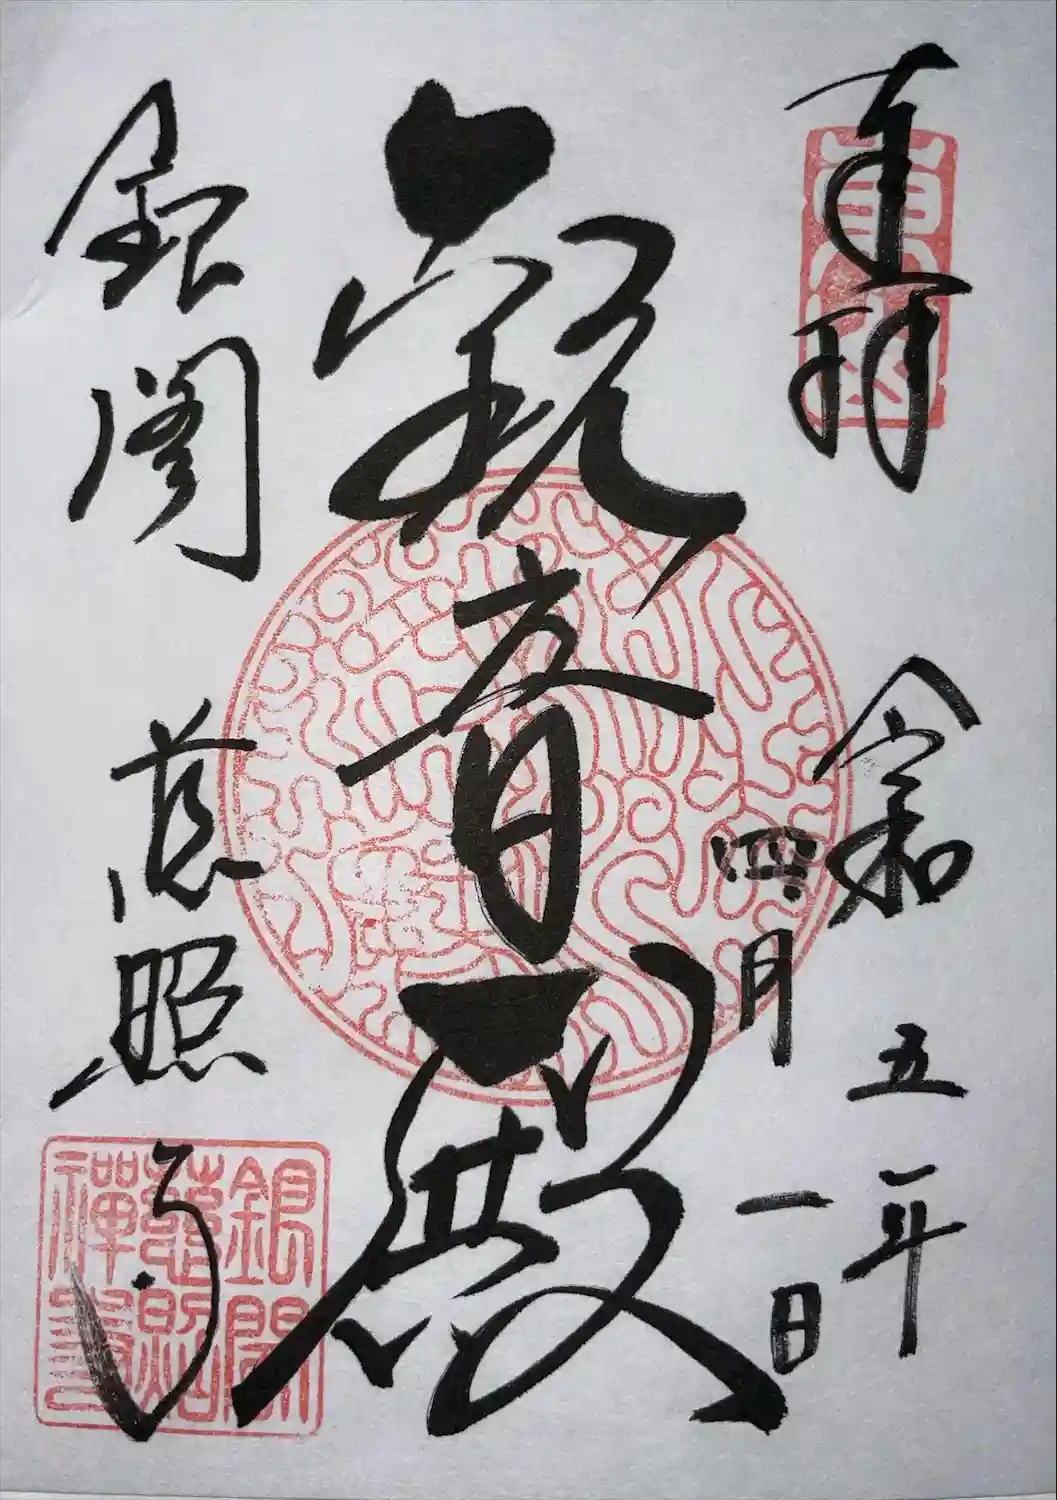 奉拝
令和五年
四月一日
観音殿
銀閣
慈照寺
銀閣
慈照
禅寺